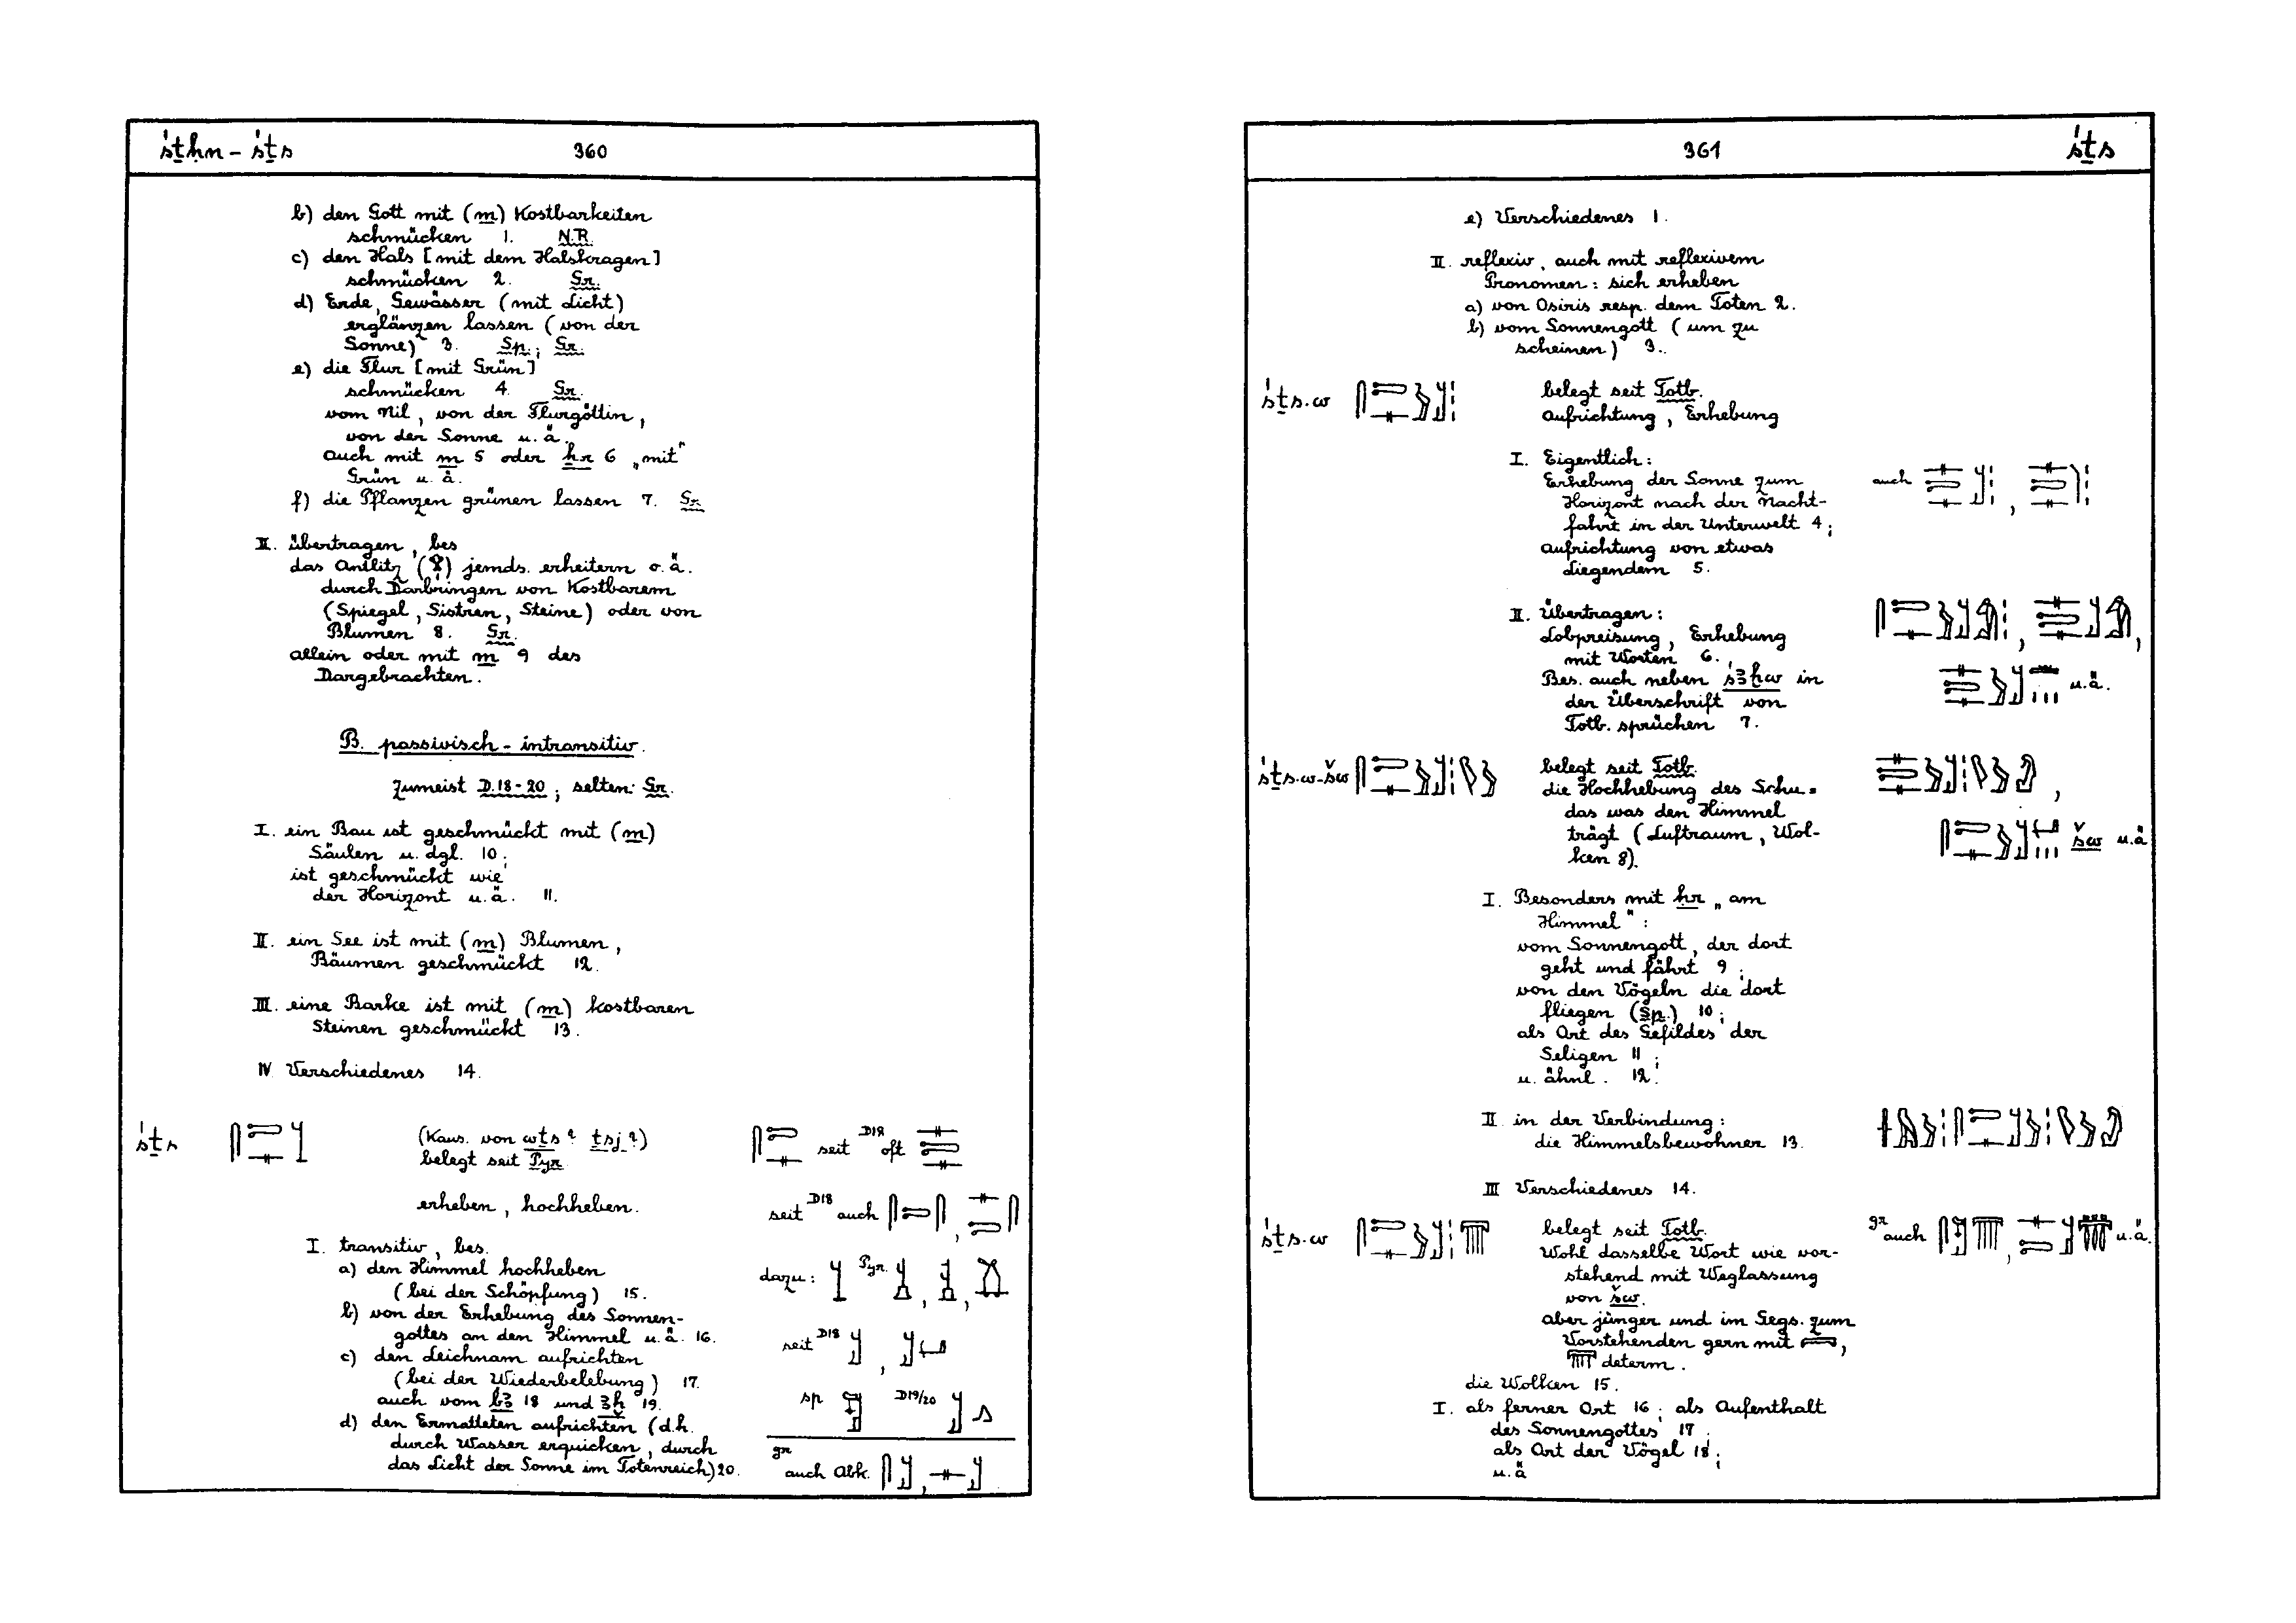 śṯḥn – śṯs 360
b) den Gott mit (m) Kostbarkeiten
schmücken 1. N.R.
c) den Hals [mit dem Halskragen]
schmücken 2. Gr.
d) Erde, Gewässer (mit Licht)
erglänzen lassen (von der
Sonne) 3. Sp.; Gr.
e) die Flur [mit Grün]
schmücken 4. Gr.
vom Nil, von der Flurgöttin,
von der Sonne u.ä.
auch mit m 5 oder ẖr 6 „mit"
Grün u.ä.
f) die Pflanzen grünen lassen 7. Gr.
II. übertragen, bes
das Antlitz (𓁷) jemds. erheitern o.ä.
durch Darbringen von Kostbarem
(Spiegel, Sistren, Steine) oder von
Blumen 8. Gr.
allein oder mit m 9 des
Dargebrachten.
B. passivisch – intransitiv.
Zumeist D.18-20; selten: Gr.
I. ein Bau ist geschmückt mit (m)
Säulen u. dgl. 10;
ist geschmückt wie
der Horizont u.ä. 11.
II. ein See ist mit (m) Blumen,
Bäumen geschmückt 12.
III. eine Barke ist mit (m) kostbaren
Steinen geschmückt 13.
IV Verschiedenes 14.
śṯs (Kaus. von wṯs? ṯsj?) seit D18 oft
belegt seit Pyr.
erheben, hochheben. seit D18 auch
I. transitiv, bes.
a) den Himmel hochheben dazu: Pyr.
(bei der Schöpfung) 15.
b) von der Erhebung des Sonnen-
gottes an den Himmel u.ä. 16. seit D18
c) den Leichnam aufrichten
(bei der Wiederbelebung) 17.
auch vom bꜣ 18 und ꜣḫ 19. sp D19/20
d) den Ermatteten aufrichten (d.h.
durch Wasser erquicken, durch gr
das Licht der Sonne im Totenreich) 20. auch Abk.
361 śṯs
e) Verschiedenes 1.
II. reflexiv, auch mit reflexivem
Pronomen: sich erheben
a) von Osiris resp. dem Toten 2.
b) vom Sonnengott (um zu
scheinen) 3.
śṯs.w belegt seit Totb.
Aufrichtung, Erhebung
I. Eigentlich:
Erhebung der Sonne zum auch
Horizont nach der Nacht-
fahrt in der Unterwelt 4;
Aufrichtung von etwas
Liegendem 5.
II. Übertragen:
Lobpreisung, Erhebung
mit Worten 6.
Bes. auch neben śꜣḫw in u.ä.
der Überschrift von
Totb. sprüchen 7.
śṯs.w-šw belegt seit Totb.
die Hochhebung des Schu =
das was den Himmel
trägt (Luftraum, Wol- šw u.ä
ken 8).
I. Besonders mit ḥr „am
Himmel":
vom Sonnengott, der dort
geht und fährt 9;
von den Vögeln die dort
fliegen (Sp.) 10;
als Ort des Gefildes der
Seligen 11;
u. ähnl. 12.
II in der Verbindung:
die Himmelsbewohner 13.
III Verschiedenes 14.
śṯs.w belegt seit Totb. gr auch u.ä.
Wohl dasselbe Wort wie vor-
stehend mit Weglassung
von šw.
aber jünger und im Gegs. zum
Vorstehenden gern mit 𓇯,
determ.
die Wolken 15.
I. als ferner Ort 16; als Aufenthalt
des Sonnengottes 17
als Ort der Vögel 18;
u.ä